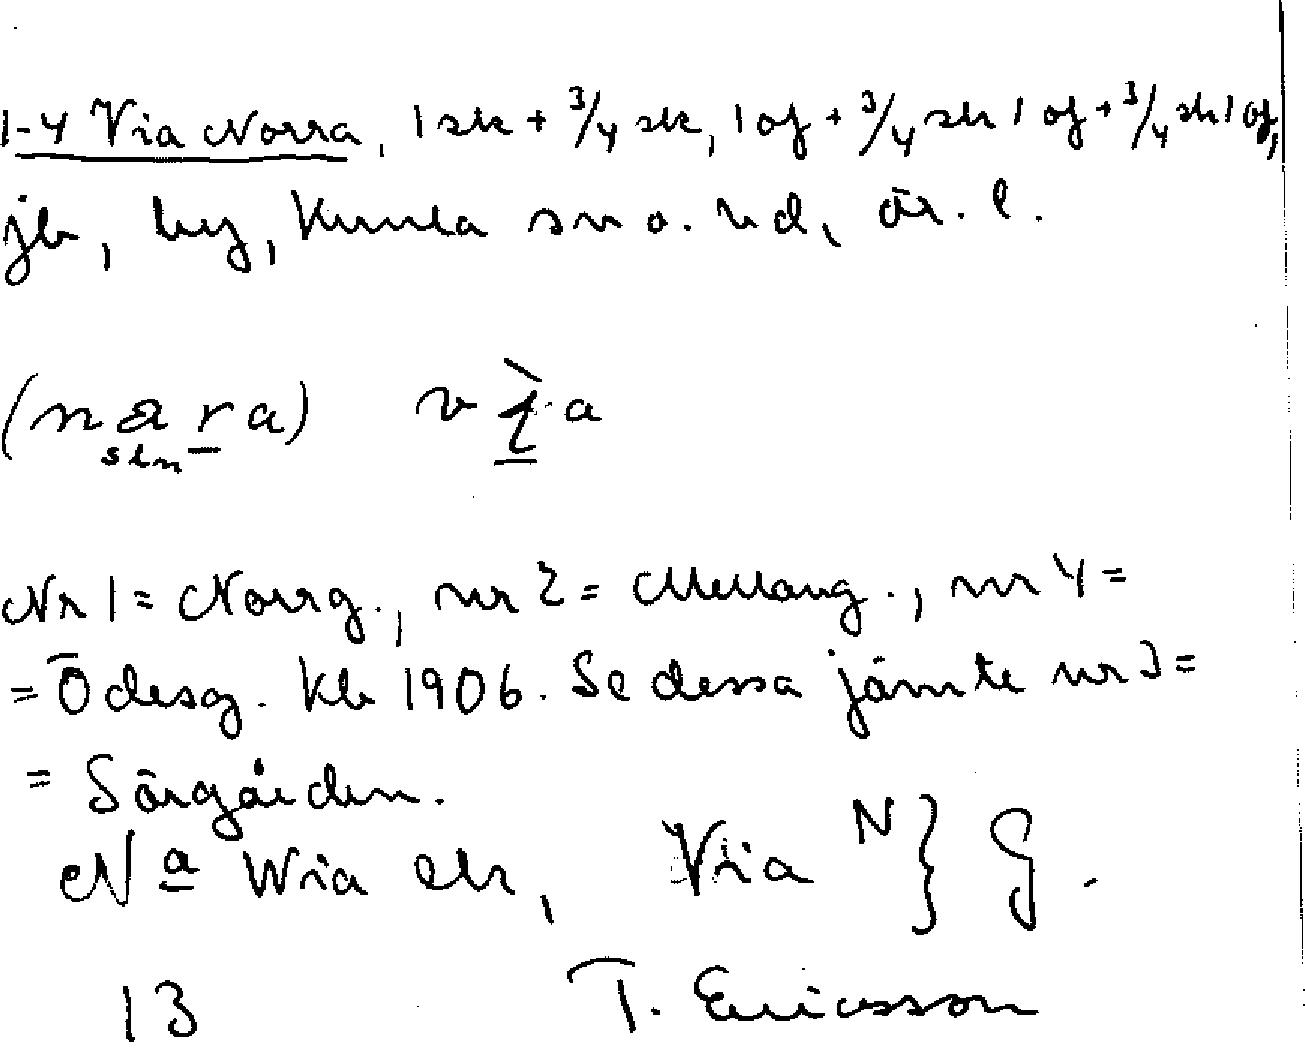 1-4 Via Norra, 1 sk + 3/4 sk, 1 of + 3/4 sk 1 of + 3/4 sk 1 of,
jb, by, Kumla sn o. hd, ör. l.
(nara) via
sln
Nr 1 = Norrg., nr 2 = Mellang., nr 4 =
= Ödesg. Kb 1906. Se dessa jämte nr 3 =
= Sörgården.
Na Wia Ek, Via N } G.
13 T. Ericsson